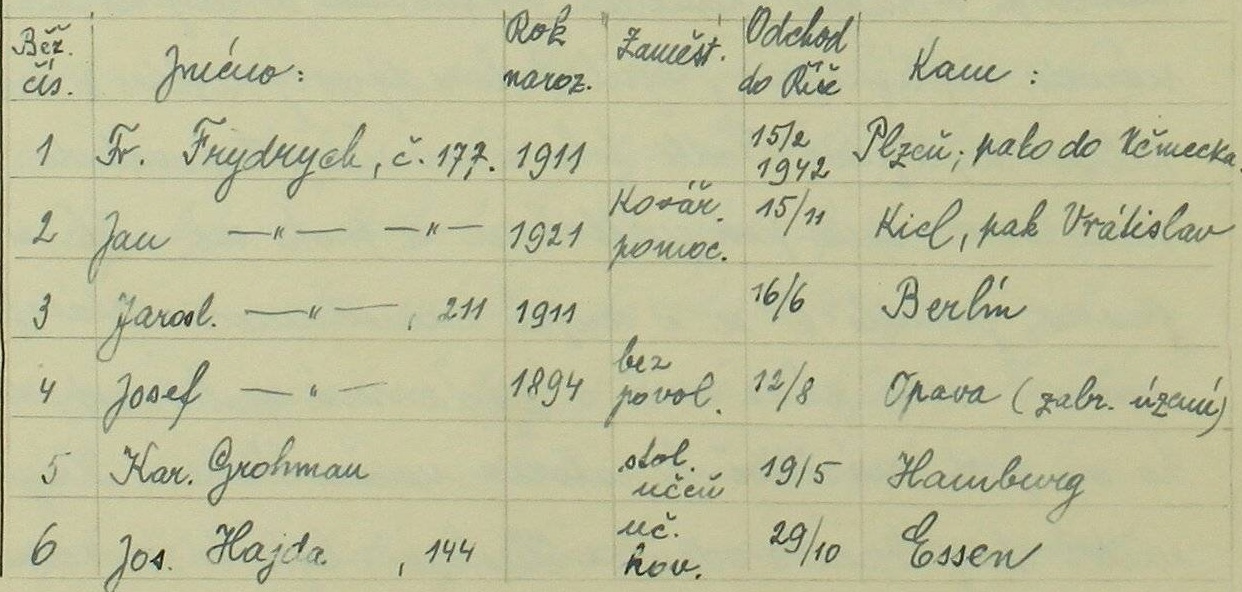 Běž. čís. Jméno: Rok naroz. Zaměst. Odchod do Říše Kam :
1 Fr. Frydrych, č. 177. 1911 15/2 1942 Plzeň; pak do Německa.
2 Jan —"— —"— 1921 Kovář. pomoc. 15/11 Kiel, pak Vrátislav
3 Jarosl. —"— , 211 1911 16/6 Berlín
4 Josef —"— 1894 bez povol. 12/8 Opava (zabr. území)
5 Kar. Grohman stol. učeň 19/5 Hamburg
6 Jos. Hajda , 144 uč. kov. 29/10 Essen